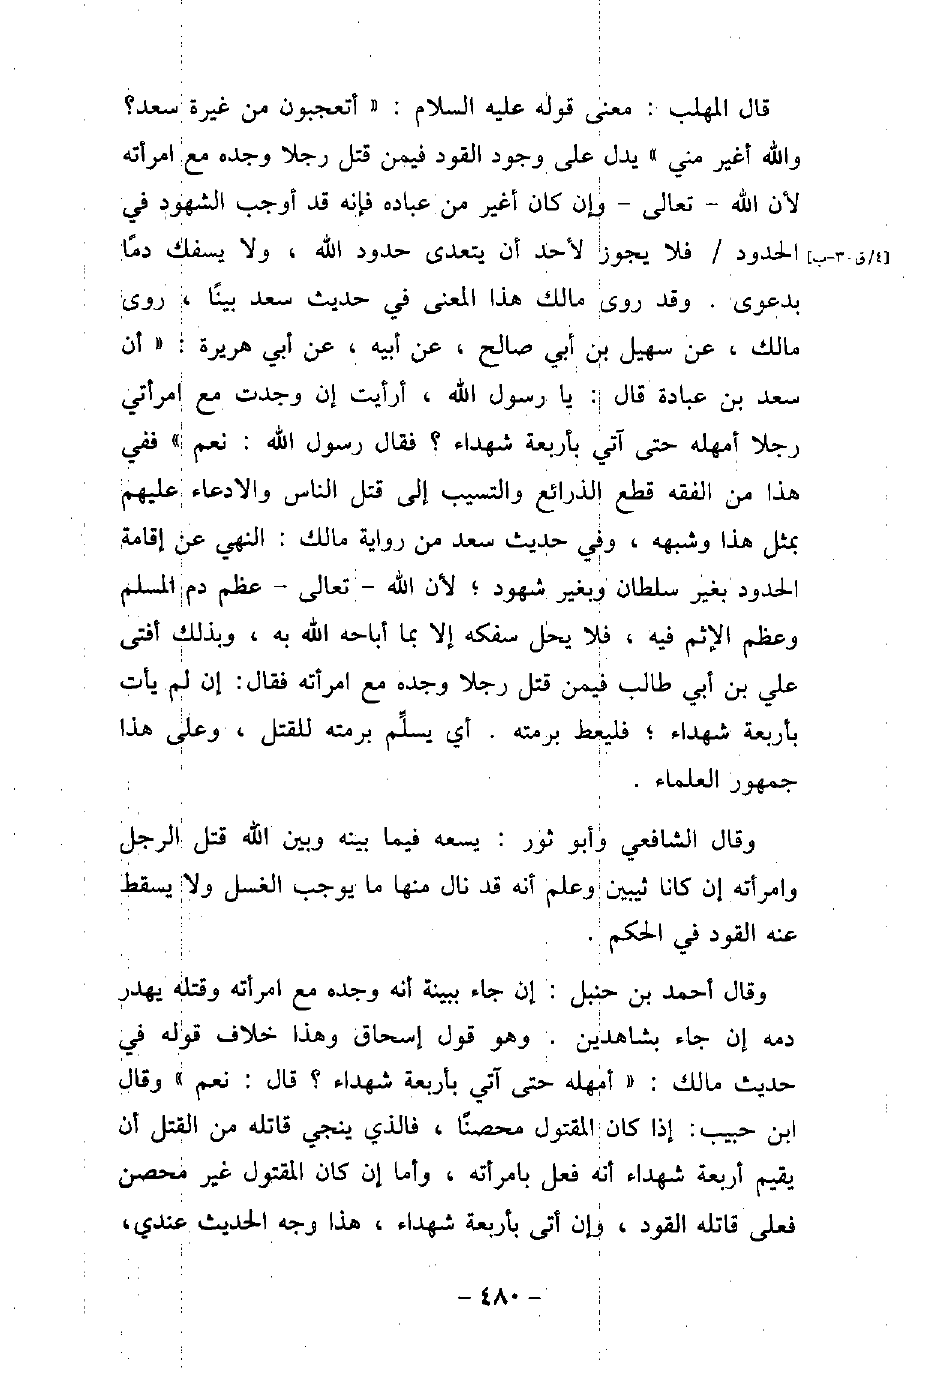 قال المهلب : معنى قوله عليه السلام : « أتعجبون من غيرة سعد؟
والله أغير مني » يدل على وجود القود فيمن قتل رجلا وجده مع امرأته
لأن الله - تعالى - وإن كان أغير من عباده فإنه قد أوجب الشهود في
[٤/ق٣٠-ب] الحدود / فلا يجوز لأحد أن يتعدى حدود الله ، ولا يسفك دمًا
بدعوى . وقد روى مالك هذا المعنى في حديث سعد بينًا ، روى
مالك ، عن سهيل بن أبي صالح ، عن أبيه ، عن أبي هريرة : « أن
سعد بن عبادة قال : يا رسول الله ، أرأيت إن وجدت مع امرأتي
رجلا أمهله حتى آتي بأربعة شهداء ؟ فقال رسول الله : نعم » ففي
هذا من الفقه قطع الذرائع والتسيب إلى قتل الناس والادعاء عليهم
بمثل هذا وشبهه ، وفي حديث سعد من رواية مالك : النهي عن إقامة
الحدود بغير سلطان وبغير شهود ؛ لأن الله - تعالى - عظم دم المسلم
وعظم الإثم فيه ، فلا يحل سفكه إلا بما أباحه الله به ، وبذلك أفتى
علي بن أبي طالب فيمن قتل رجلا وجده مع امرأته فقال: إن لم يأت
بأربعة شهداء ؛ فليعط برمته . أي يسلَّم برمته للقتل ، وعلى هذا
جمهور العلماء .
وقال الشافعي وأبو ثور : يسعه فيما بينه وبين الله قتل الرجل
وامرأته إن كانا ثيبين وعلم أنه قد نال منها ما يوجب الغسل ولا يسقط
عنه القود في الحكم .
وقال أحمد بن حنبل : إن جاء ببينة أنه وجده مع امرأته وقتله يهدر
دمه إن جاء بشاهدين . وهو قول إسحاق وهذا خلاف قوله في
حديث مالك : « أمهله حتى آتي بأربعة شهداء ؟ قال : نعم » وقال
ابن حبيب: إذا كان المقتول محصنًا ، فالذي ينجي قاتله من القتل أن
يقيم أربعة شهداء أنه فعل بامرأته ، وأما إن كان المقتول غير محصن
فعلى قاتله القود ، وإن أتى بأربعة شهداء ، هذا وجه الحديث عندي،
- ٤٨٠ -